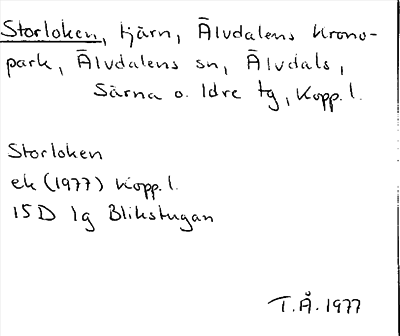 Storloken, tjärn, Älvdalens Krono-
park, Älvdalens sn, Älvdals,
Särna o. Idre tg, Kopp. l.
Storloken
ek (1977) Kopp. l.
15D 1g Blikstugan
T.Å. 1977